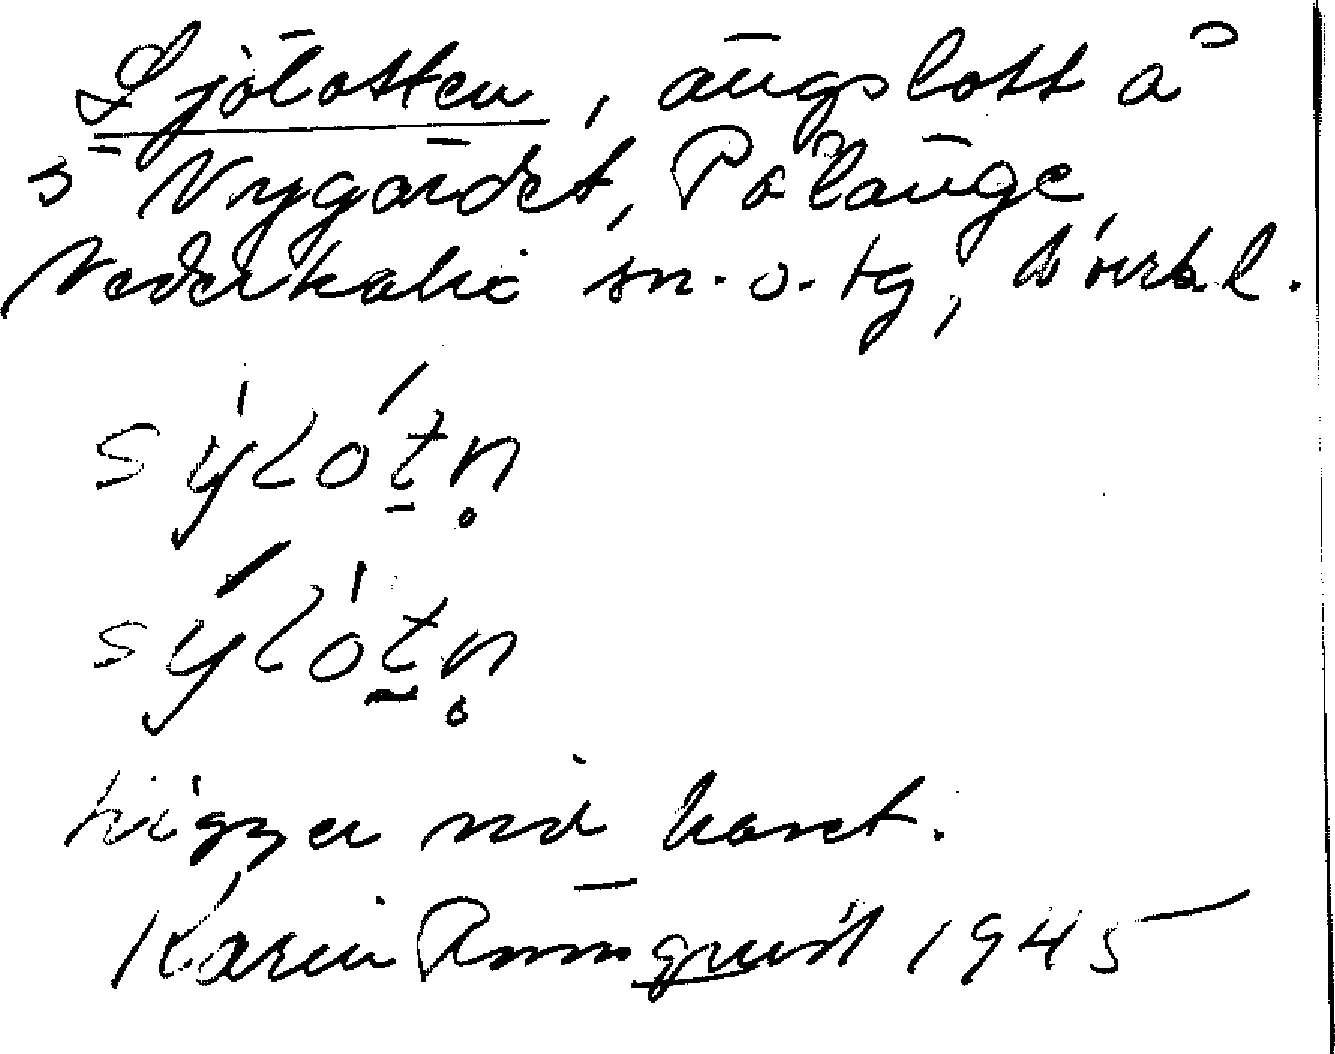 Sjölotten, ängslott å
5 Nygärdet, Pålänge
Nederkalix sn. o. tg, N.
sýlòtn
sýlòtn
Ligger vid havet.
Karin Runnquist 1945